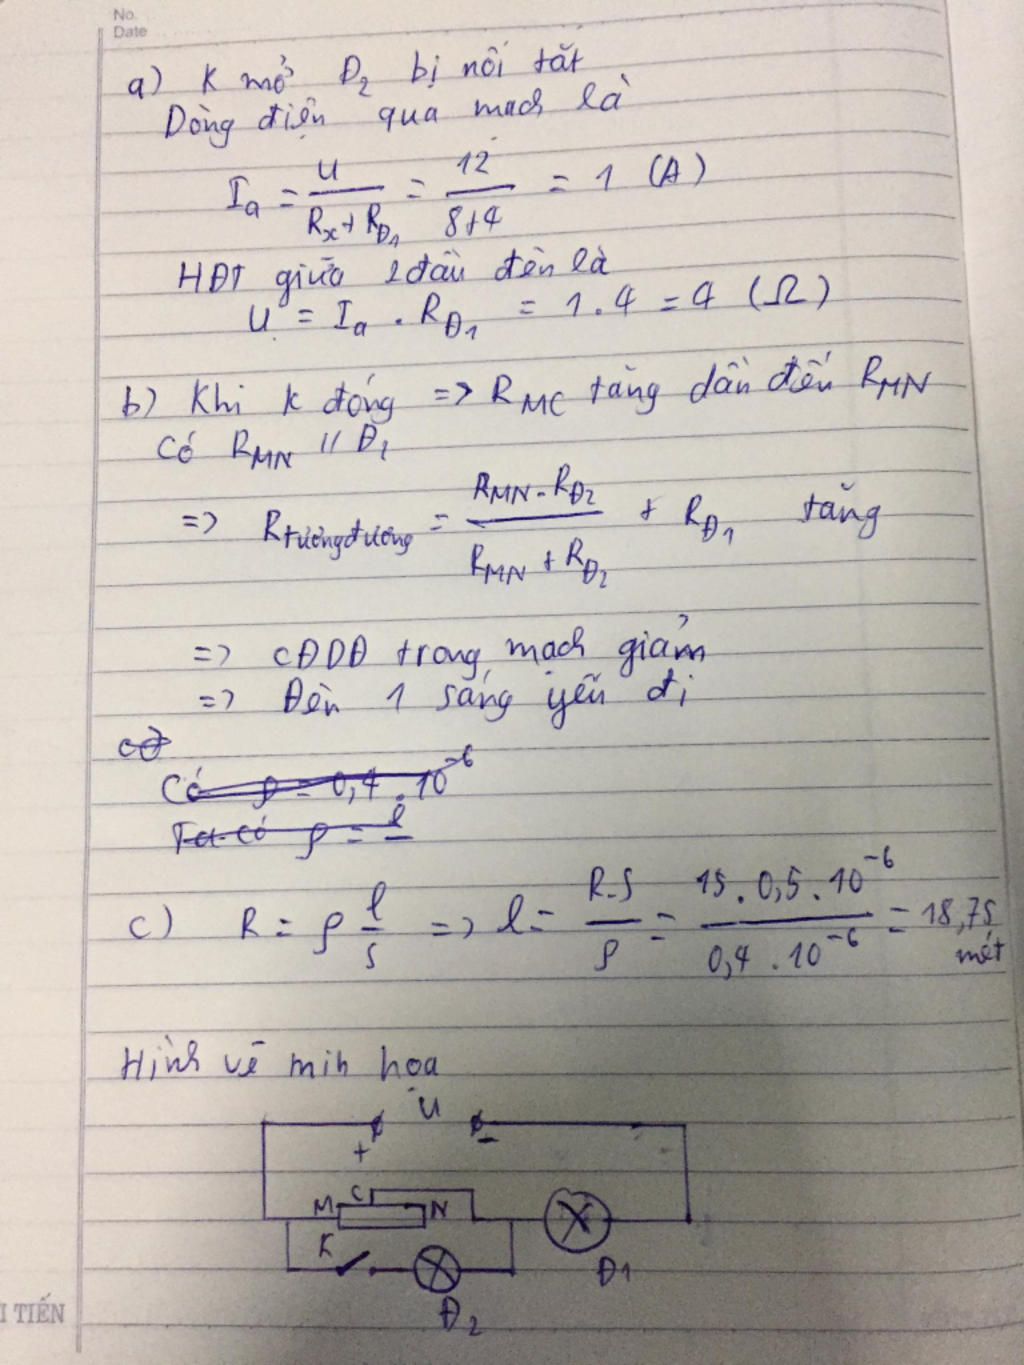 No.
Date
a) K mở Đ2 bị nối tắt
Dòng điện qua mạch là
Ia = U / (Rx + RĐ1) = 12 / (8+4) = 1 (A)
HĐT giữa 2 đầu đèn là
U = Ia . RĐ1 = 1.4 = 4 (Ω)
b) Khi k đóng => RMC tăng dần đến RMN
Có RMN // Đ2
=> Rtương đương = (RMN . RĐ2) / (RMN + RĐ2) + RĐ1 tăng
=> CĐDĐ trong mạch giảm
=> Đèn 1 sáng yếu đi
Có ρ = 0,4 . 10^-6
Ta có ρ = l
c) R = ρ l/S => l = R.S / ρ = 15 . 0,5 . 10^-6 / 0,4 . 10^-6 = 18,75 mét
Hình vẽ minh họa
U
+ -
M C N
K
Đ1
Đ2
I TIẾN